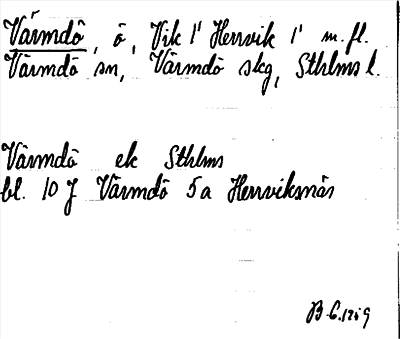 Värmdö, ö, Vik 1' Herrvik 1' m. fl.
Värmdö sn, Värmdö skg, Sthlms l.
Värmdö ek Sthlms
bl. 10 J Värmdö 5a Herrviksnäs